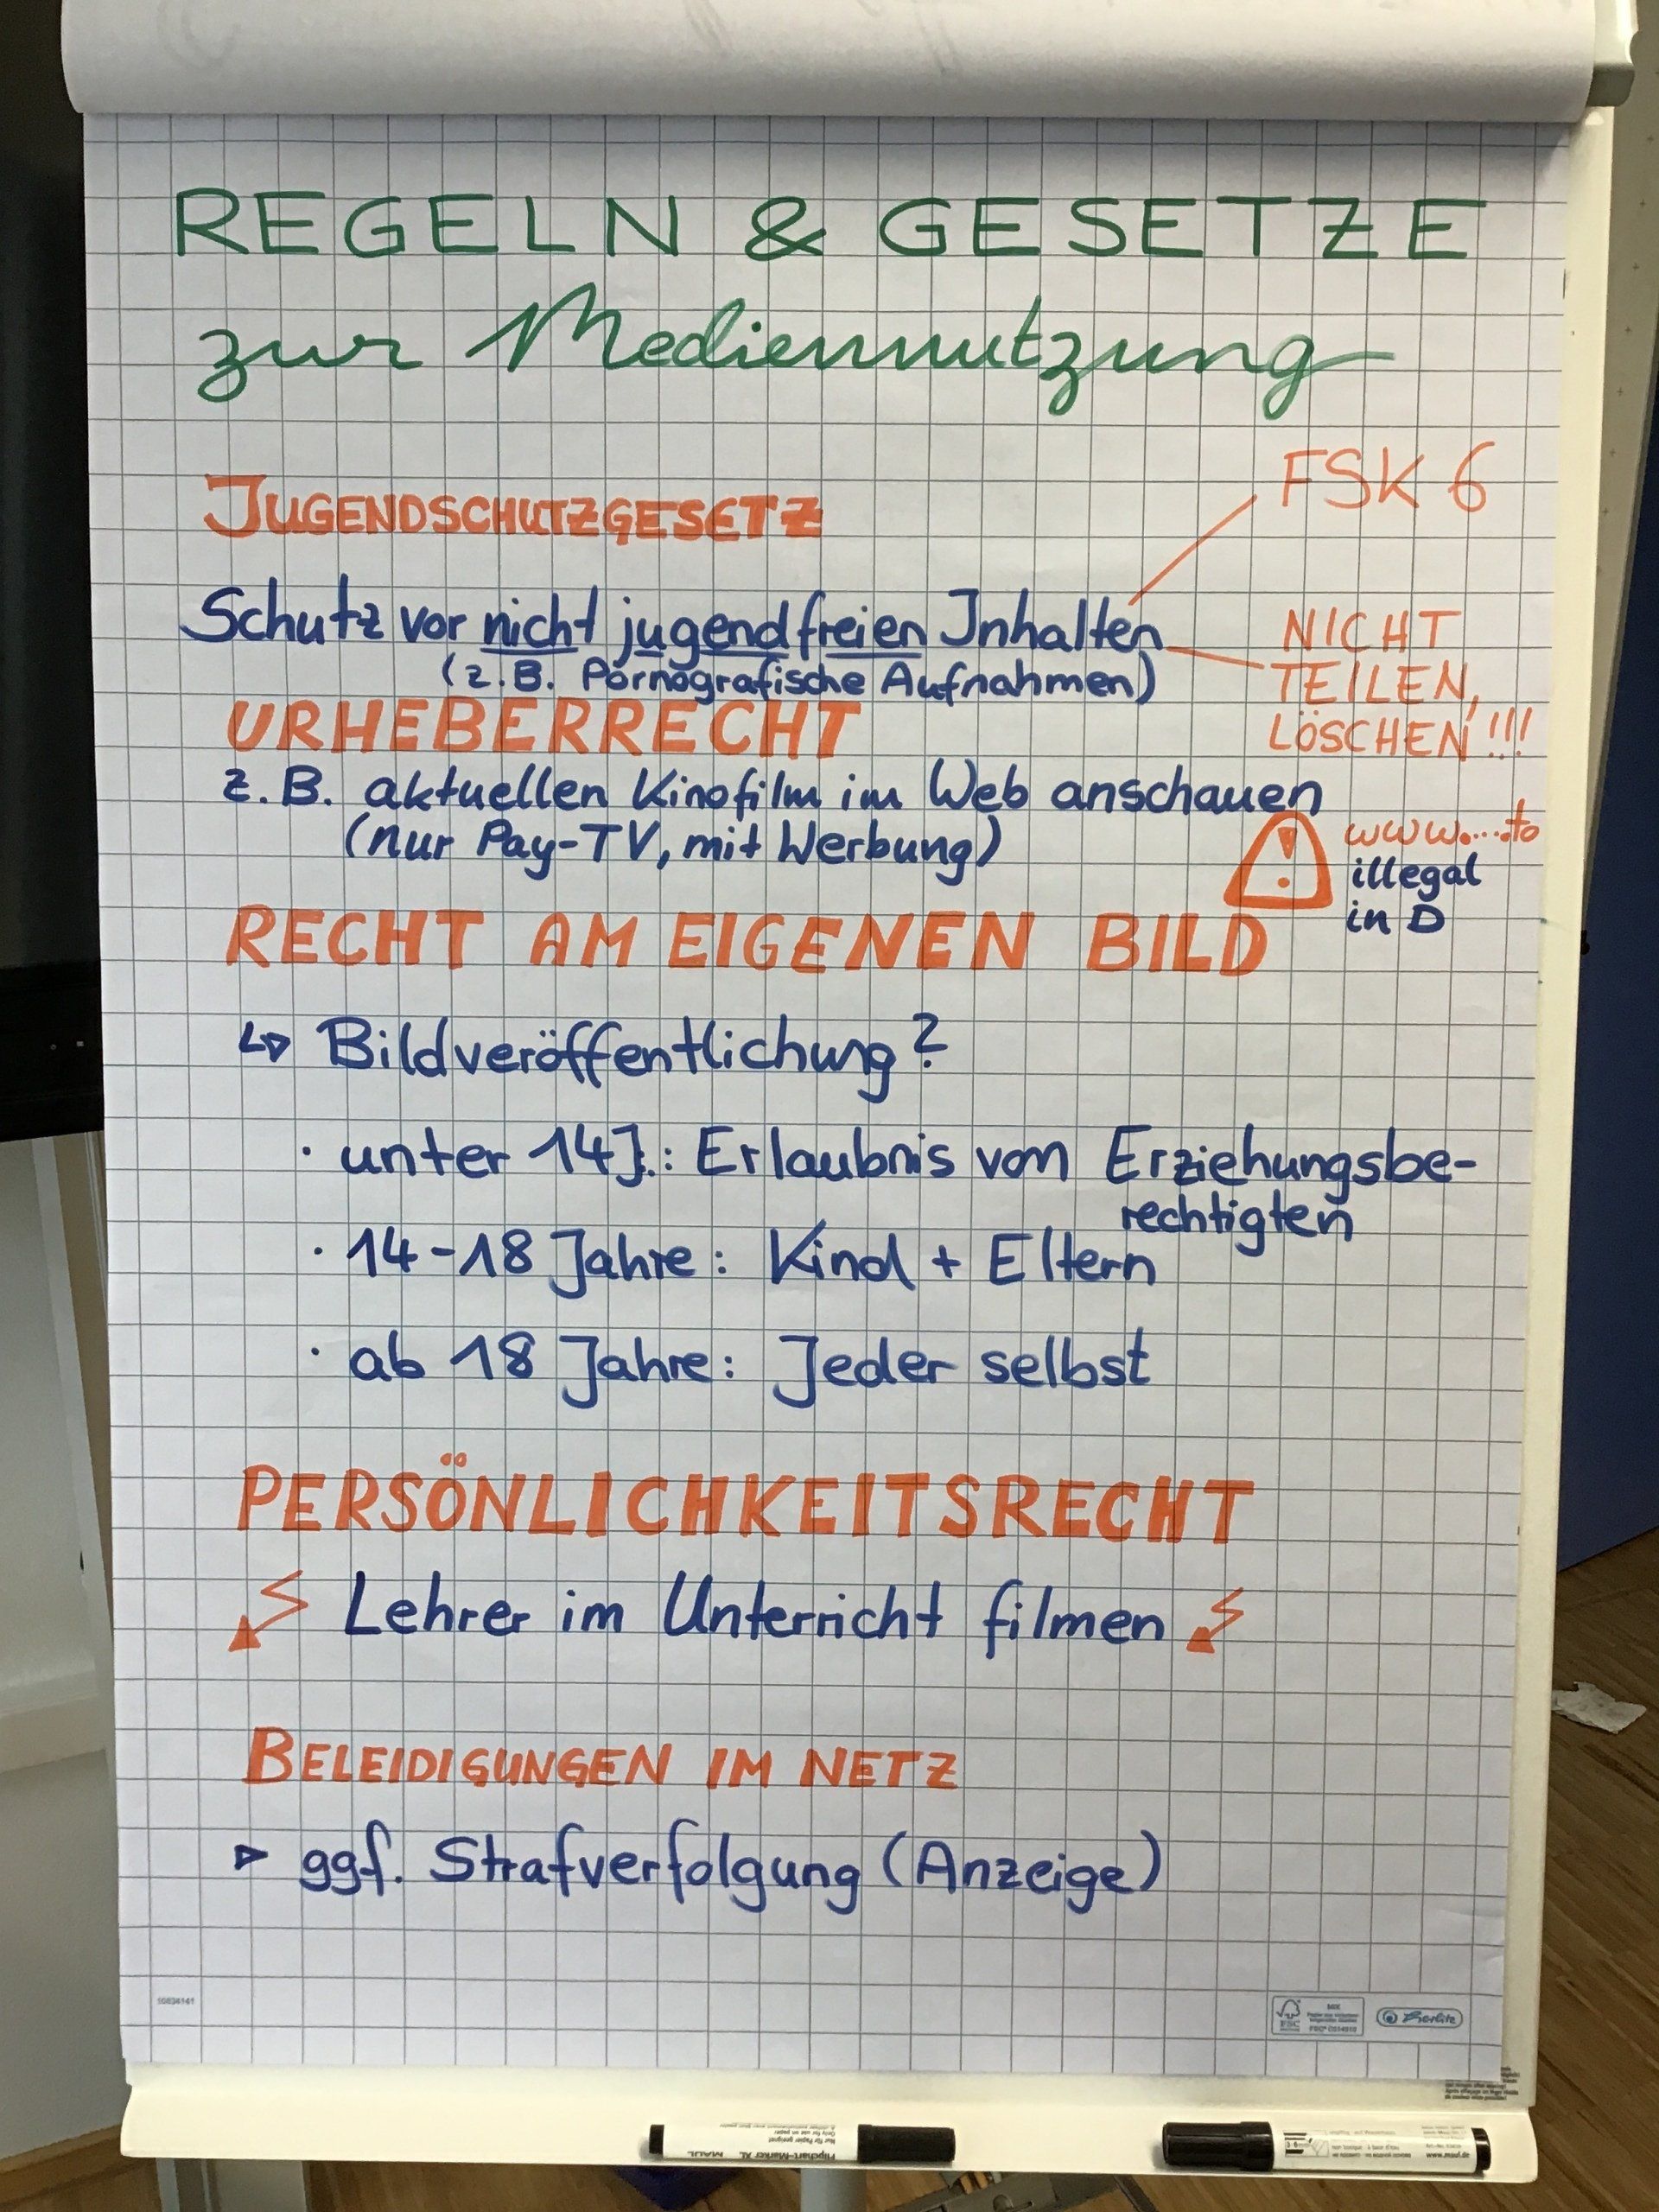 REGELN & GESETZE
zur Mediennutzung
JUGENDSCHUTZGESETZ
FSK 6
Schutz vor nicht jugendfreien Inhalten
(z.B. Pornografische Aufnahmen)
NICHT
TEILEN,
LÖSCHEN!!!
URHEBERRECHT
z.B. aktuellen Kinofilm im Web anschauen
(nur Pay-TV, mit Werbung)
! www.....to
illegal
in D
RECHT AM EIGENEN BILD
Bildveröffentlichung?
· unter 14J.: Erlaubnis von Erziehungsbe-
rechtigten
· 14-18 Jahre: Kind + Eltern
· ab 18 Jahre: Jeder selbst
PERSÖNLICHKEITSRECHT
Lehrer im Unterricht filmen
BELEIDIGUNGEN IM NETZ
ggf. Strafverfolgung (Anzeige)
FSC
MIX
Herlitz
Flipchart-Marker XL MAUL
www.maul.de